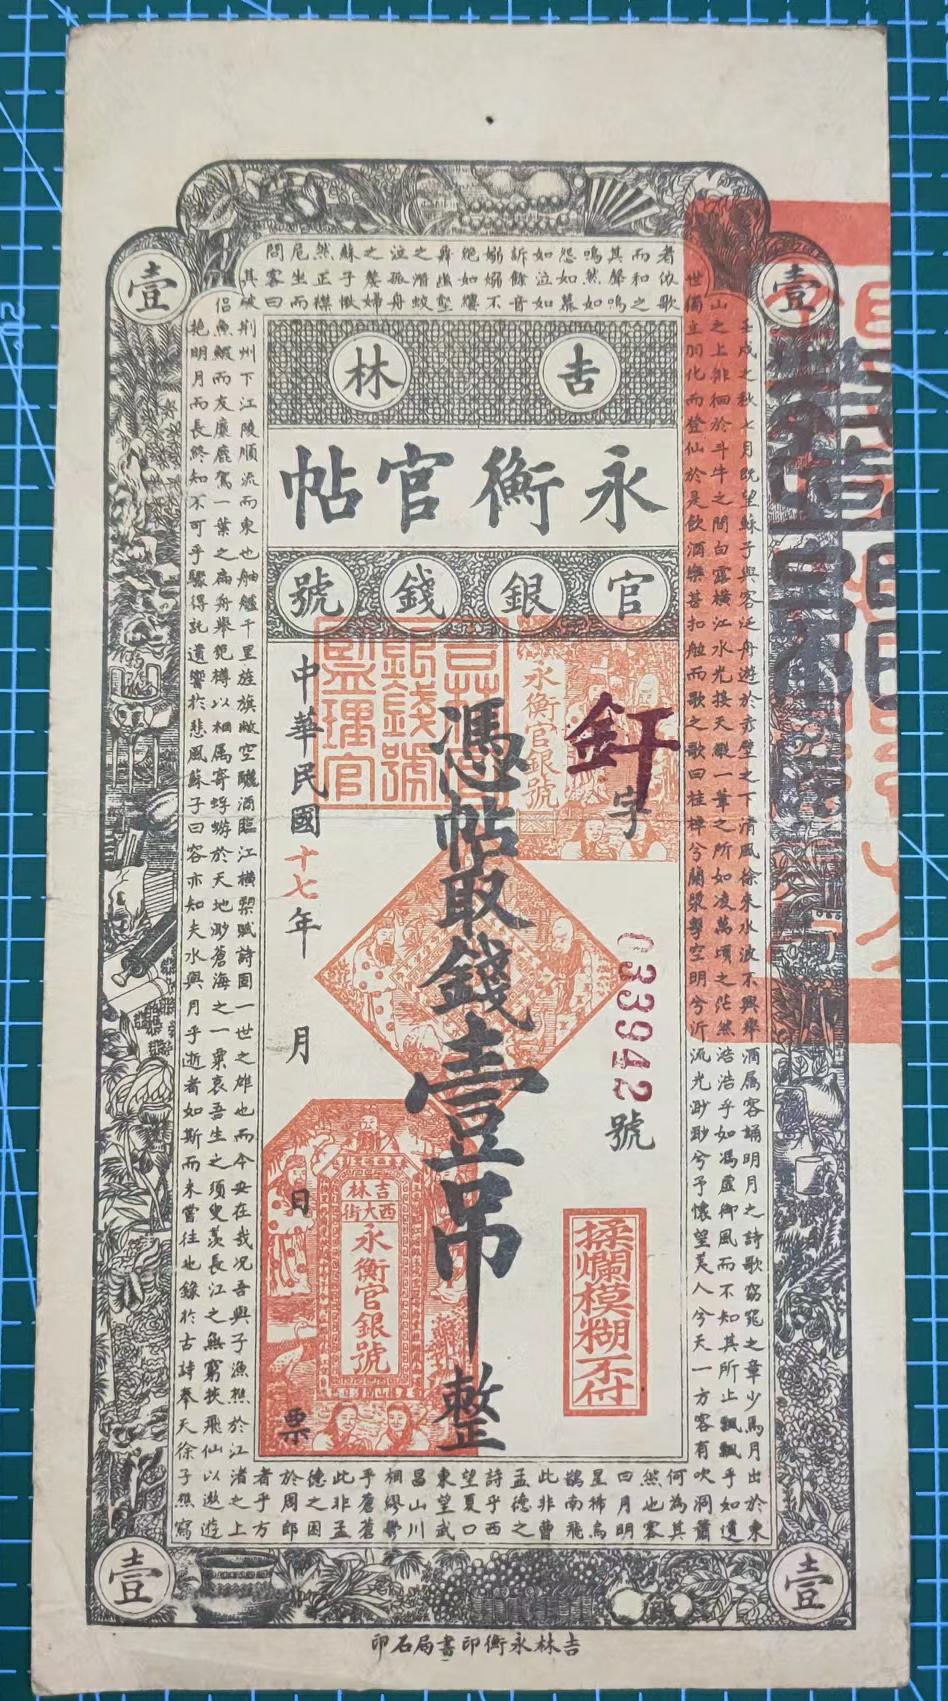 壹
壹
吉林
永衡官帖
官銀錢號
釬字
033942號
憑帖取錢壹吊整
中華民國十七年 月 日 票
吉林官銀錢號監理官
永衡官銀號
吉林
西大街
永衡官銀號
揉爛模糊不付
壬戌之秋七月既望蘇子與客泛舟遊於赤壁之下清風徐來水波不興舉酒屬客誦明月之詩歌窈窕之章少焉月出於東
山之上徘徊於斗牛之間白露橫江水光接天縱一葦之所如凌萬頃之茫然浩浩乎如馮虛御風而不知其所止飄飄乎如遺
世獨立羽化而登仙於是飲酒樂甚扣舷而歌之歌曰桂棹兮蘭槳擊空明兮泝流光渺渺兮予懷望美人兮天一方客有吹洞簫
者依歌
而和之
其聲嗚
嗚然如
怨如慕
如泣如
訴餘音
嫋嫋不
絕如縷
舞幽壑
之潛蛟
泣孤舟
之嫠婦
蘇子愀
然正襟
尼坐而
問客曰
何為其
然也客
曰月明
星稀烏
鵲南飛
此非曹
孟德之
詩乎西
望夏口
東望武
昌山川
相繆鬱
乎蒼蒼
此非孟
德之困
於周郎
者乎方
其破荊州下江陵順流而東也舳艫千里旌旗蔽空釃酒臨江橫槊賦詩固一世之雄也而今安在哉况吾與子漁樵於江渚之上
侶魚鰕而友麋鹿駕一葉之扁舟舉匏樽以相屬寄蜉蝣於天地渺滄海之一粟哀吾生之須臾羨長江之無窮挾飛仙以遨遊
抱明月而長終知不可乎驟得託遺響於悲風蘇子曰客亦知夫水與月乎逝者如斯而未嘗往也錄於古詩奉天徐子照寫
壹
壹
吉林永衡印書局石印